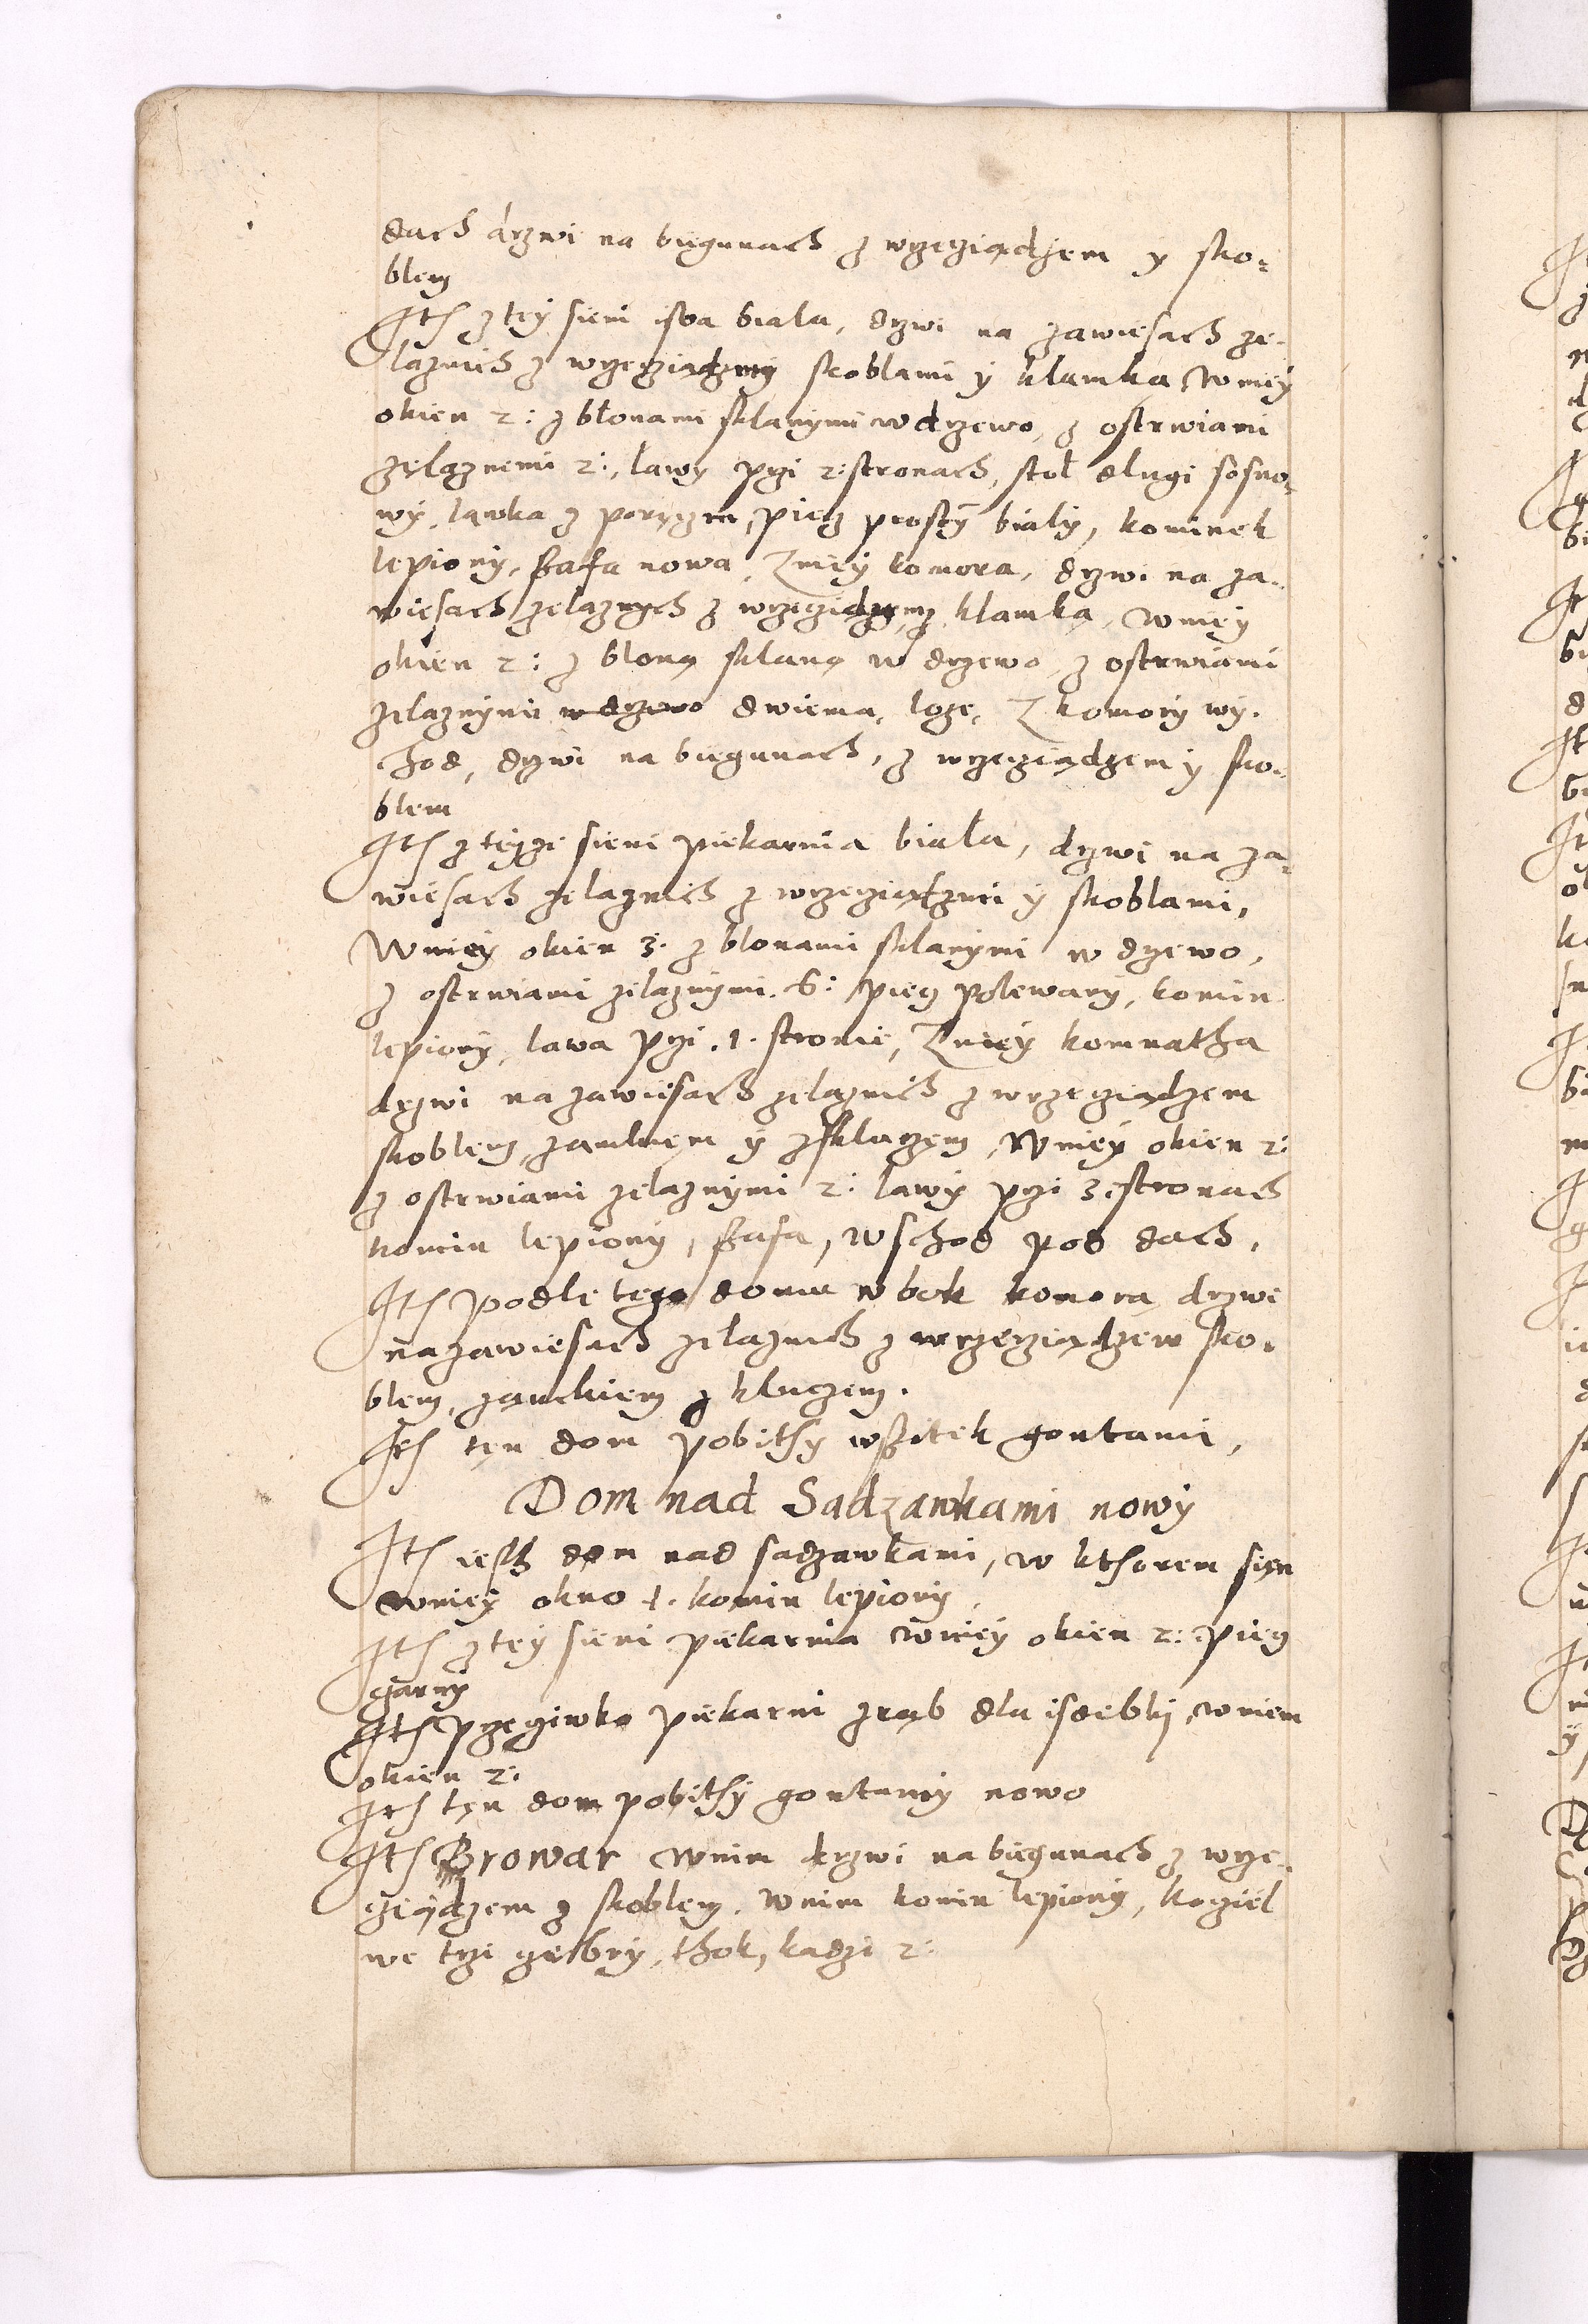 dach drzwi na biegunach z wrzeciądzem y sko-
blem
Ith z tey sieni isba biała, drzwi na zawiesach że-
laznich z wrzeciądzmi skoblami y klamką w niey
okien 2: z błonami sklanymi w drzewo, z ostrwiami
żelaznemi 2:, ławy przi 2: stronach, stoł długi sosno-
wy, ławka z poręczm, piecz prosty biały, kominek
lepiony, szafa nowa, Z niey komora, drzwi na za-
wiesach żelaznych z wrzeciądzem z klamką, w niey
okien 2: z błoną sklaną w drzewo z ostrwiami
żelaznymi w drzewo dwiema, łoże, Z komory wy-
chod, drzwi na biegunach, z wrzeciądzem y sko-
blem
Ith z teyże sieni piekarnia biała, drzwi na za-
wiesach żelaznich z wrzeciądzmi y skoblami,
W niey okien 3. z błonami sklanymi w drzewo,
z ostrwiami żelaznymi. 6: piecz polewany, komin
lepiony, ława przi .1. stronie, Z niey komnatha
drzwi na zawiesach żelaznich z wrzeciądzem
skoblem, zamkiem y z kluczem, W niey okien 2:
z ostrwiami żelaznymi 2: ławy przi 3. stronach
komin lepiony, szafa, wschod pod dach,
Ith podle tego domu w bok komora drzwi
na zawiesach żelaznich z wrzeciądzem sko-
blem, zamkiem z kluczem.
Ith ten dom pobithy wszitek gontami,
Dom nad Sadzawkami nowy
Ith iest dom nad sadzawkami, w kthorem sień
w niey okno 1. komin lepiony,
Ith z tey sieni piekarnia w niey okien 2: piecz
czarny
Ith przeciwko piekarni zrąb dla isdebki, w niem
okien 2:
Ith ten dom pobithy gontamy nowo
Ith Browar w nim drzwi na biegunach z wrze-
ciądzem z skoblem. W nim komin lepiony, kocieł
we trzi czebry, thok, kadzi 2: